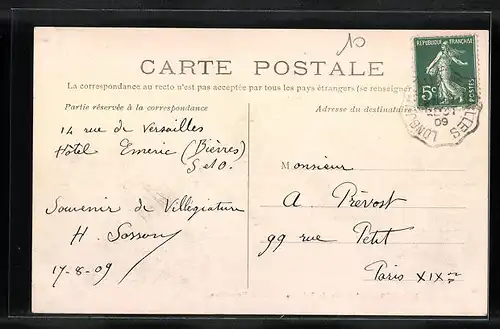 CARTE POSTALE
La correspondance au recto n'est pas acceptée par tous les pays étrangers (se renseigner
Partie réservée à la correspondance
14 rue de Versailles
Hôtel Emeric (Bièvres)
S et O.
Souvenir de Villégiature
H.
17-8-09
Adresse du destinataire
Monsieur
A Prévost
99 rue Petit
Paris XIXme
REPUBLIQUE FRANÇAISE
5c
POSTES